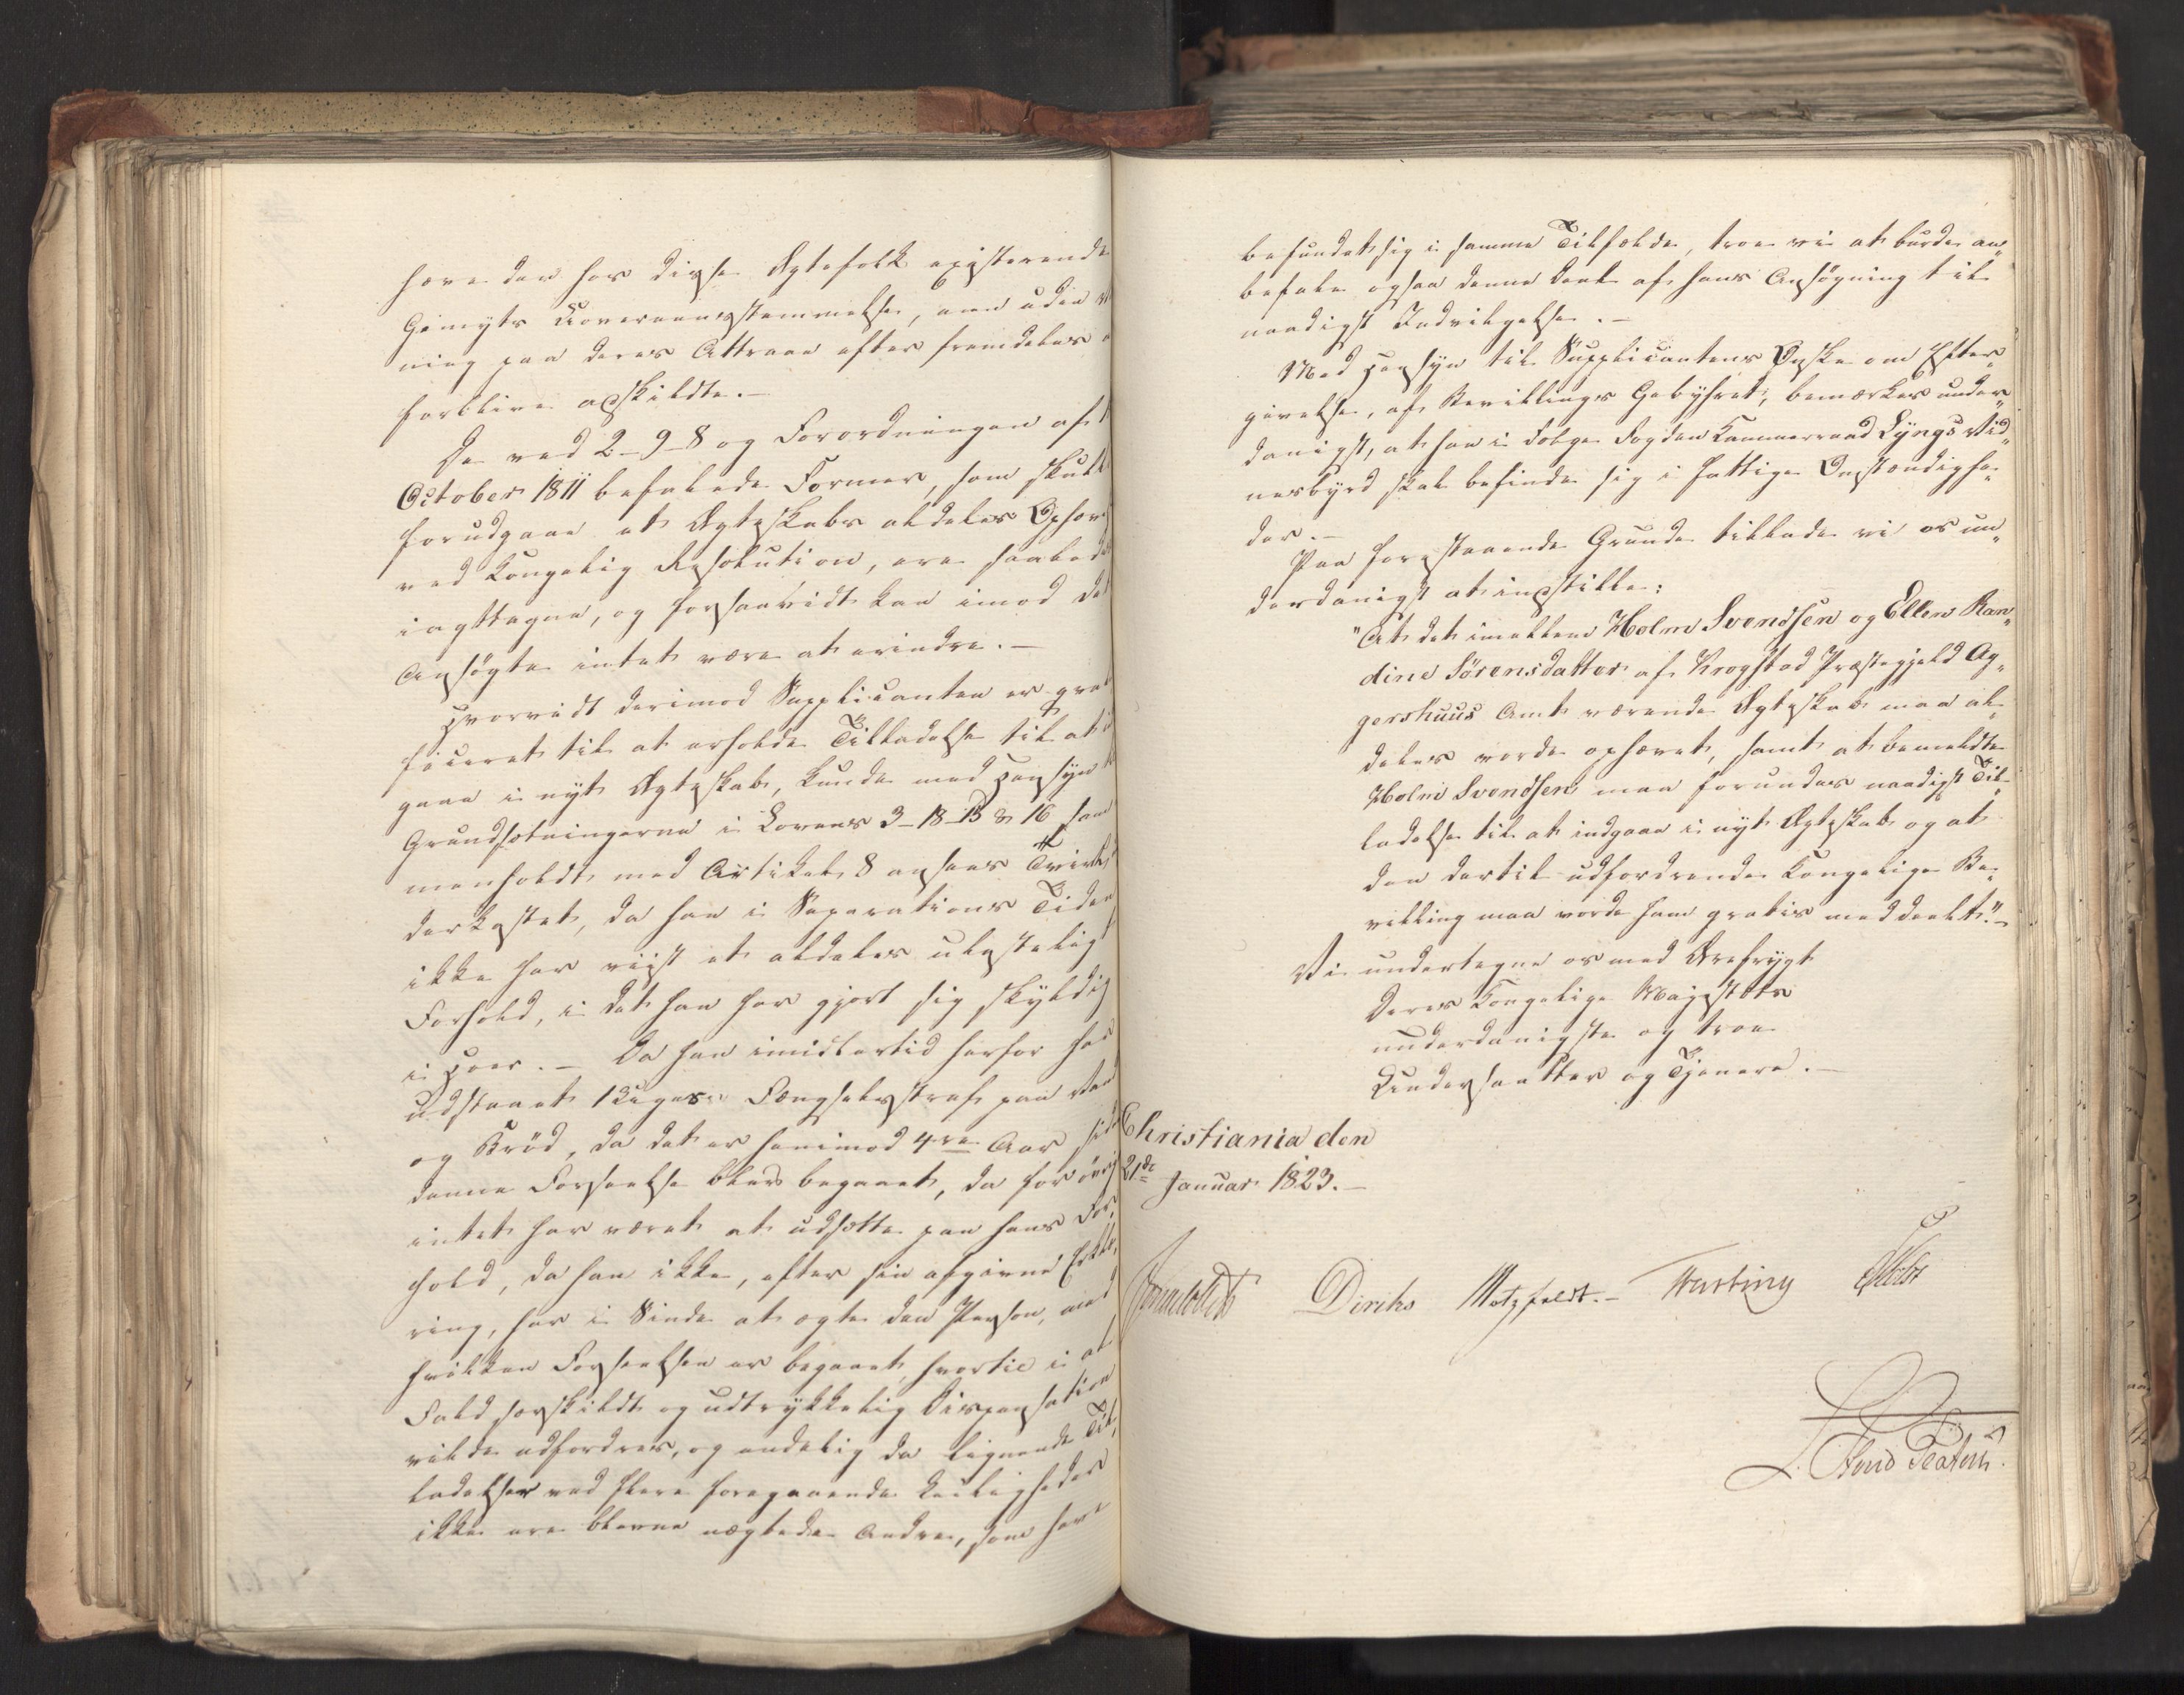 hæve den hos disse Ægtefolk existerende
Gemyts Uoverensstemmelse, men uden
ning paa deres Attraae efter fremdeles
forblive adskildte.—
De ved 2-9-8 og Forordningen af
October 1811 befalede Former, som skulle
forudgaae et Ægteskabs aldeles Ophæv
ved Kongelig Resolution, ere saaledes
iagttagne, og forsaavidt kan imod det
Ansøgte intet være at erindre.—
Hvorvidt derimod Supplicanten er qvali
ficeret til at erholde Tilladelse til at
gaae i nyt Ægteskab, kunde med Hensyn
Grundsætningerne i Lovens 3-18-15 & 16 sam
menholdt med Artikel 8 ansees Tvivl
derkastet, da han i Separations Tiden
ikke har viist et aldeles ulasteligt
Forhold, i det han har gjort sig skyldig
i Hoer.— Da han imidlertid herfor har
udstaaet Fængselsstraf paa Vand
og Brød, da det er henimod 4re Aar siden
denne Forseelse blev begaaet, da for øvrigt
intet har været at udsætte paa hans For„
hold, da han ikke, efter sin afgivne Erklæ„
ring, har i Sinde at ægte den Person, med
hvilken Forseelsen er begaaet, hvortil i al
Fald særskildt og udtrykkelig Dispensation
vilde udfordres, og endelig da lignende Til„
ladelser ved flere foregaaende Leiligheder
ikke ere blevne nægtede Andre, som have
befundet sig i samme Tilfælde, troe vi at burde an„
befale ogsaa denne Deel af hans Ansøgning til
naadigst Indvilgelse.—
Med Hensyn til Supplicantens Ønske om Efter„
givelse af Bevillings Gebyhret, bemærkes under„
danigst, at han i Følge Fogden Kammerraad Lyngs Vid„
nesbyrd skal befinde sig i fattige Omstændighe„
der.—
Paa foranstaaende Grunde tillade vi os un„
derdanigst at indstille:
"At det imellem Holm Svendsen og Ellen Ran„
dine Sørensdatter af Krogstad Præstegjeld Ag„
gershuus Amt værende Ægteskab maa al„
deles vorde ophævet, samt at bemeldte
Holm Svendsen maa forundes naadigst Til„
ladelse til at indgaae i nyt Ægteskab og at
den dertil udfordrende Kongelige Be„
villing maa vorde ham gratis meddeelt."—
Vi undertegne os med Ærefrygt
Deres Kongelige Majestæts
underdanigste og troe
Undersaatter og Tjenere.—
Christiania den
21de Januar 1823.—
Diriks Motzfeldt.—